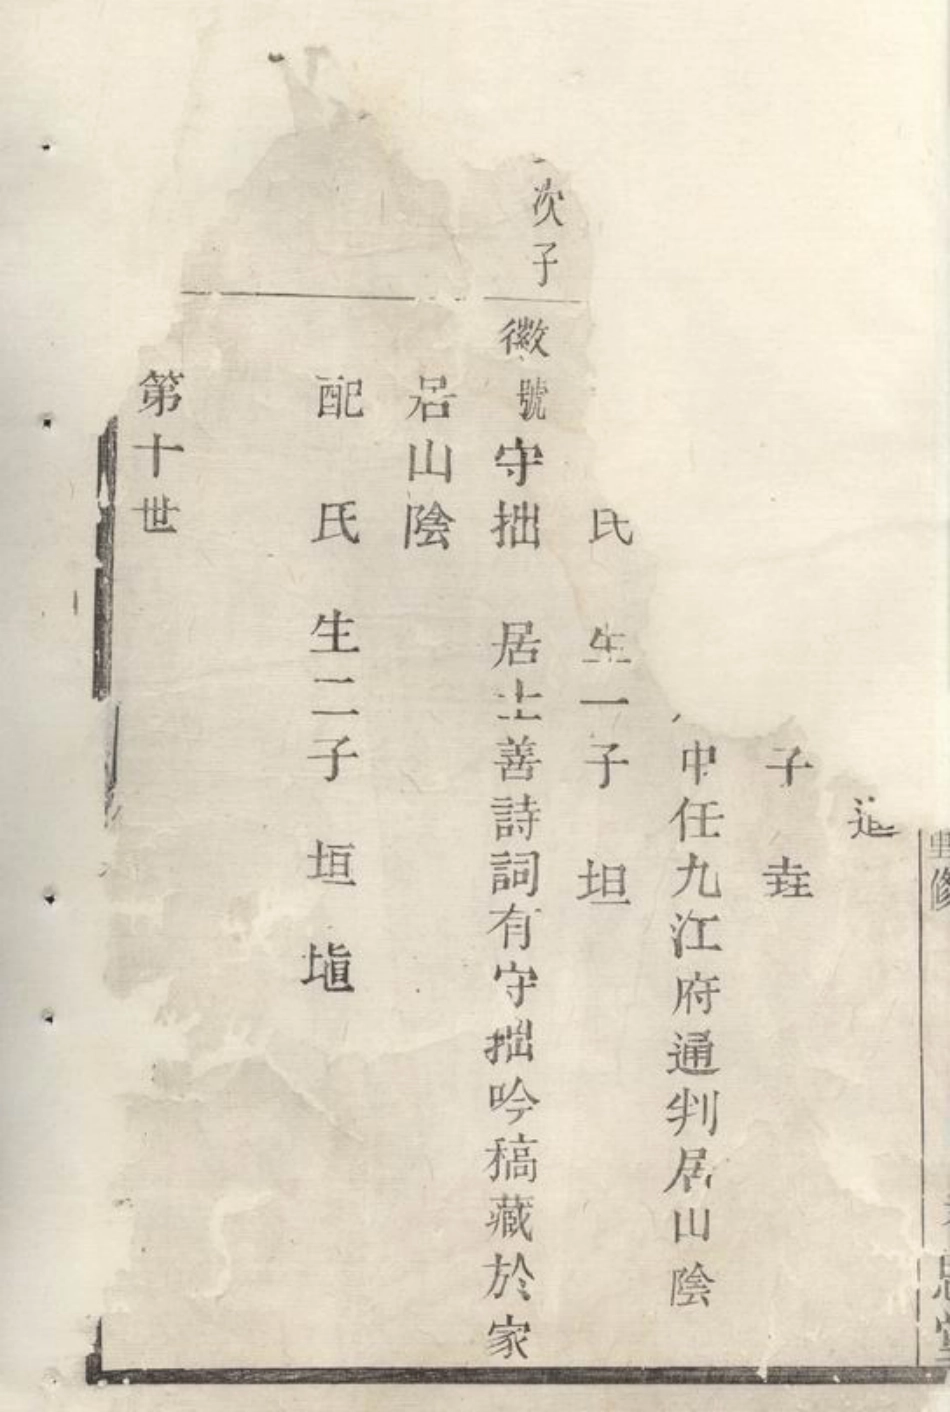 修
思堂
子 垚
中任九江府通判居山陰
氏 生一子 坦
次子
徽號守拙 居士善詩詞有守拙吟稿藏於家
居山陰
配 氏 生二子 垣 塡
第十世